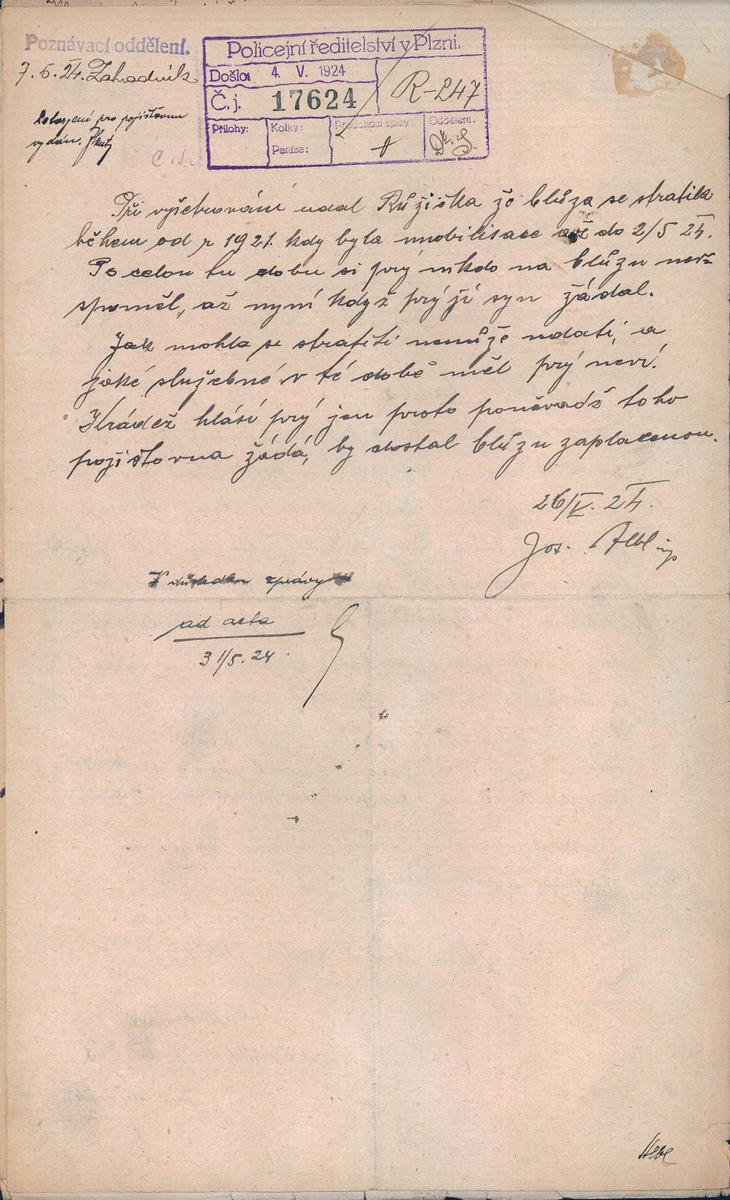 Poznávací oddělení.
7.5.24. Zahradník
Potvrzení pro pojišťovnu
vydáno.
Policejní ředitelství v Plzni.
Došlo: 4. V. 1924
Č. j. 17624
R-247
Přílohy:
Kolky:
Peníze:
Předchozí spisy
Oddělení:
Při vyšetřování udal Růžička že blůza se stratila
během od r 1921. kdy byla mobilisace až do 2/5 24.
Po celou tu dobu si prý nikdo na blůzu nevz-
spoměl, až nyní když prý ji syn žádal.
Jak mohla se stratiti nemůže udati, a
jaké služebné v té době měl prý neví.
Krádež hlásí prý jen proto poněvadž toho
pojišťovna žádá, by dostal blůzu zaplacenou.
26/V. 24.
Jos. Altl
V důsledku zprávy
ad acta
31/5. 24.